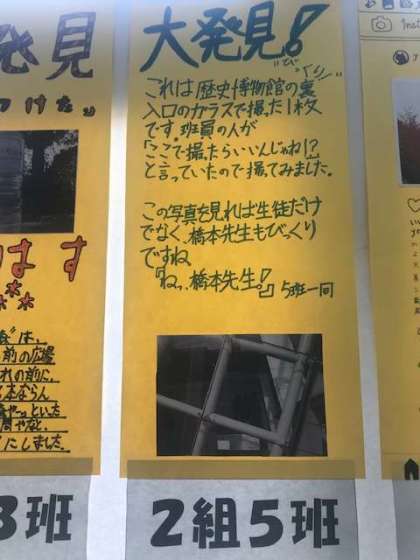 発見
つけた。
はす
は、
前の広場
れの前に、
本ならん
といった
にしました。
3班
大発見!
"びっくり"
これは歴史博物館の裏
入口のガラスで撮った1枚
です。班員の人が
「ここで撮ったらいいんじゃね!?」
と言っていたので撮てみました。
この写真を見れば生徒だけ
でなく、橋本先生もびっくり
ですね
『ねっ、橋本先生!』 5班一同
2組5班